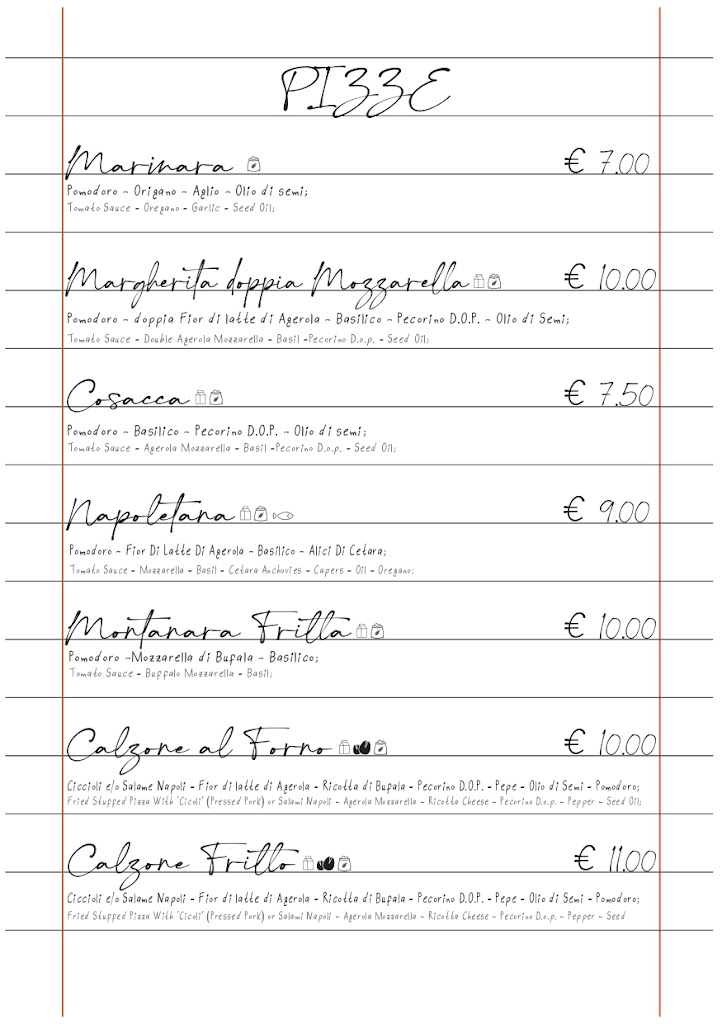 PIZZE
Marinara € 7.00
Pomodoro ~ Origano ~ Aglio ~ Olio di semi;
Tomato Sauce - Oregano - Garlic - Seed Oil;
Margherita doppia Mozzarella € 10.00
Pomodoro ~ doppia Fior di latte di Agerola ~ Basilico ~ Pecorino D.O.P. ~ Olio di Semi;
Tomato Sauce - Double Agerola Mozzarella - Basil -Pecorino D.o.p. - Seed Oil;
Cosacca € 7.50
Pomodoro ~ Basilico ~ Pecorino D.O.P. ~ Olio di semi;
Tomato Sauce - Agerola Mozzarella - Basil -Pecorino D.o.p. - Seed Oil;
Napoletana € 9.00
Pomodoro ~ Fior Di Latte Di Agerola ~ Basilico ~ Alici Di Cetara;
Tomato Sauce - Mozzarella - Basil - Cetara Anchovies - Capers - Oil - Oregano;
Montanara Fritta € 10.00
Pomodoro ~Mozzarella di Bufala ~ Basilico;
Tomato Sauce - Buffalo Mozzarella - Basil;
Calzone al Forno € 10.00
Ciccioli e/o Salame Napoli - Fior di latte di Agerola - Ricotta di Bufala - Pecorino D.O.P. - Pepe - Olio di Semi - Pomodoro;
Fried Stuffed Pizza With "Cicoli" (Pressed Pork) or Salami Napoli - Agerola Mozzarella - Ricotta Cheese - Pecorino D.o.p. - Pepper - Seed Oil;
Calzone Fritto € 11.00
Ciccioli e/o Salame Napoli - Fior di latte di Agerola - Ricotta di Bufala - Pecorino D.O.P. - Pepe - Olio di Semi - Pomodoro;
Fried Stuffed Pizza With "Cicoli" (Pressed Pork) or Salami Napoli - Agerola Mozzarella - Ricotta Cheese - Pecorino D.o.p. - Pepper - Seed